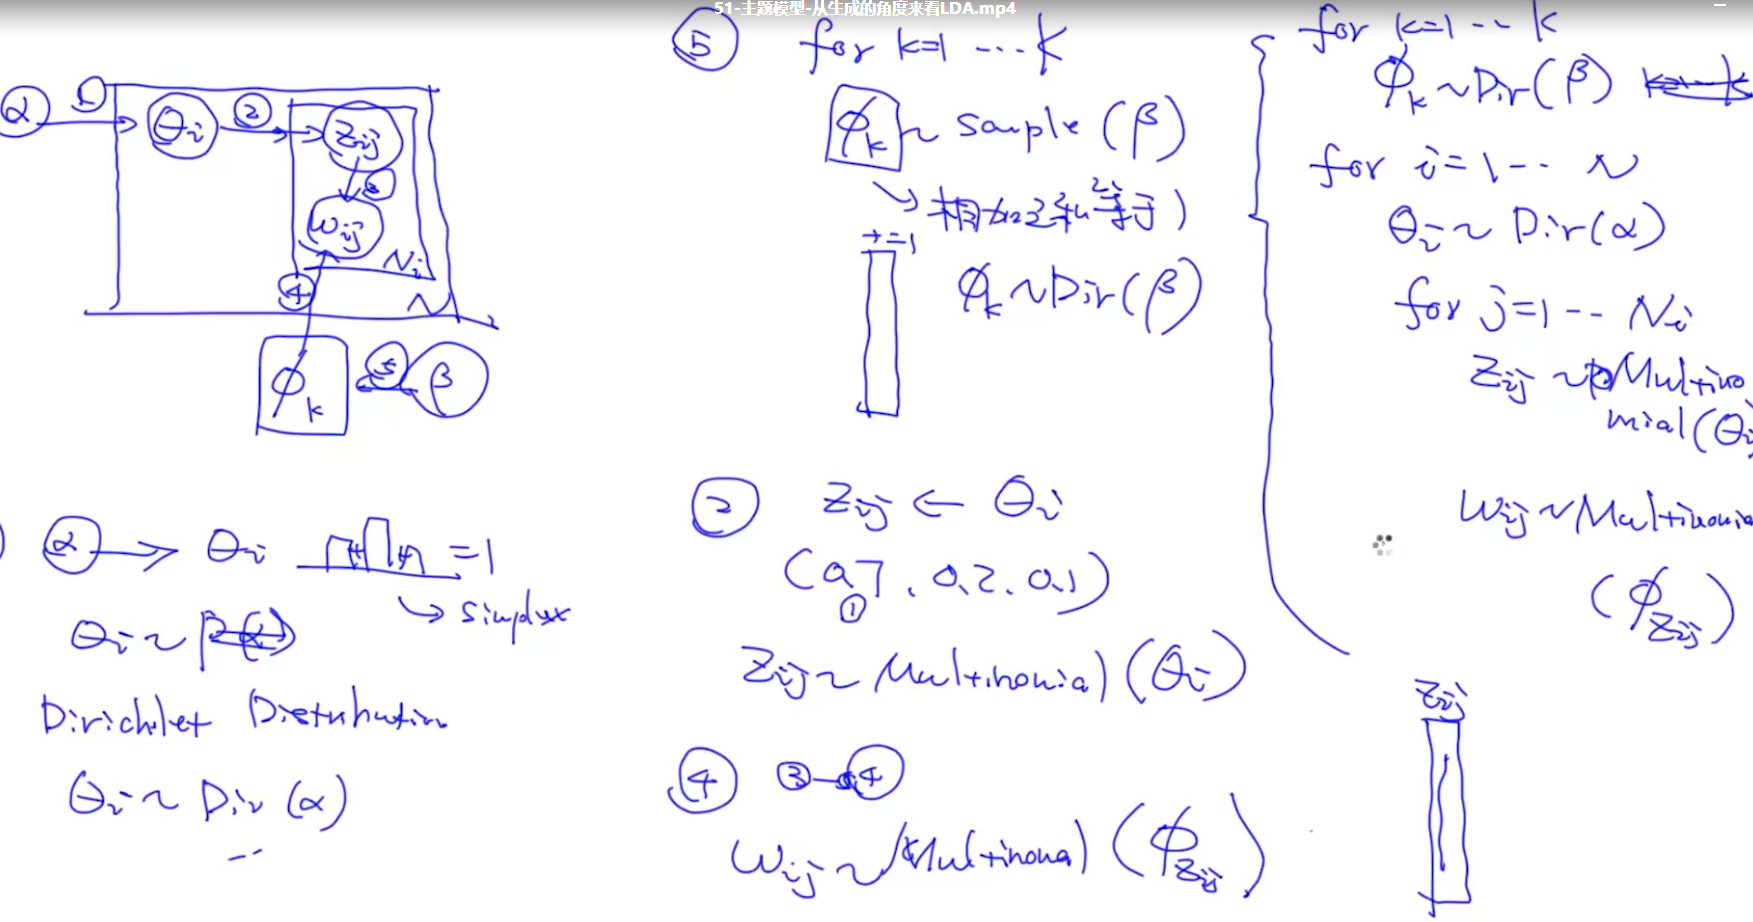 51-主题模型-从生成的角度来看LDA.mp4
α ① θi ② Zij
③
Wij
Ni
④ N
ϕk ⑤ β
α → θi + + =1
→ simplex
θi ~
Dirichlet Distribution
θi ~ Dir (α)
⑤ for k=1 ... K
ϕk ~ sample (β)
→ 相加之和等于1
+=1
ϕk ~ Dir(β)
② Zij ← θi
(0.7, 0.2, 0.1)
①
Zij ~ Multinomial (θi)
④ ③ → ④
Wij ~ Multinomial (ϕZij)
for k=1 -- K
ϕk ~ Dir(β)
for i=1 -- N
θi ~ Dir(α)
for j=1 -- Ni
Zij ~ Multino
mial(θi
Wij ~ Multinomia
(ϕZij)
Zij